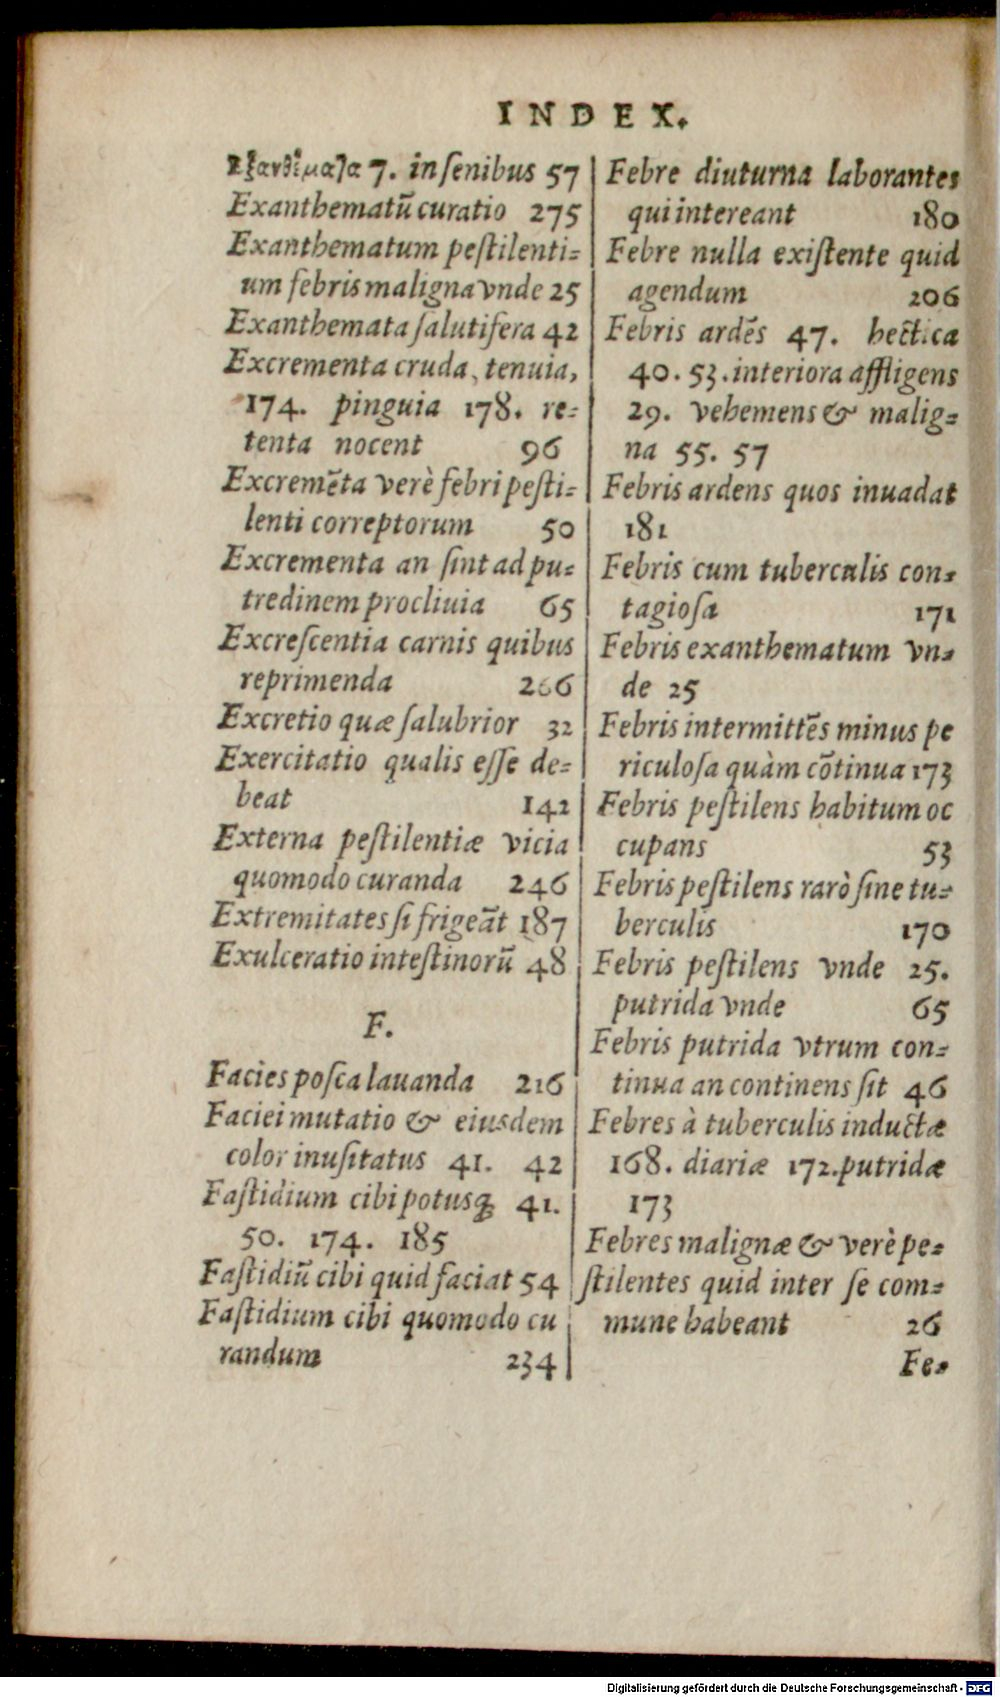 INDEX.
Ἐξανθήματα 7. in ſenibus 57
Exanthematũ curatio 275
Exanthematum peſtilenti-
um febris maligna vnde 25
Exanthemata ſalutifera 42
Excrementa cruda, tenuia,
174. pinguia 178. re-
tenta nocent 96
Excremẽta verè febri peſti-
lenti correptorum 50
Excrementa an ſint ad pu-
tredinem procliuia 65
Excreſcentia carnis quibus
reprimenda 266
Excretio quæ ſalubrior 32
Exercitatio qualis eſſe de-
beat 142
Externa peſtilentiæ vicia
quomodo curanda 246
Extremitates ſi frigeãt 187
Exulceratio inteſtinorũ 48
F.
Facies poſca lauanda 216
Faciei mutatio & eiusdem
color inuſitatus 41. 42
Faſtidium cibi potusq́ꝫ 41.
50. 174. 185
Faſtidiũ cibi quid faciat 54
Faſtidium cibi quomodo cu
randum 234
Febre diuturna laborantes
qui intereant 180
Febre nulla exiſtente quid
agendum 206
Febris ardẽs 47. hectica
40. 53. interiora affligens
29. vehemens & malig-
na 55. 57
Febris ardens quos inuadat
181
Febris cum tuberculis con-
tagioſa 171
Febris exanthematum vn-
de 25
Febris intermittẽs minus pe
riculoſa quàm cõtinua 173
Febris peſtilens habitum oc
cupans 53
Febris peſtilens rarò ſine tu-
berculis 170
Febris peſtilens vnde 25.
putrida vnde 65
Febris putrida vtrum con-
tinua an continens ſit 46
Febres à tuberculis inductæ
168. diariæ 172. putridæ
173
Febres malignæ & verè pe-
ſtilentes quid inter ſe com-
mune habeant 26
Fe-
Digitalisierung gefördert durch die Deutsche Forschungsgemeinschaft - DFG